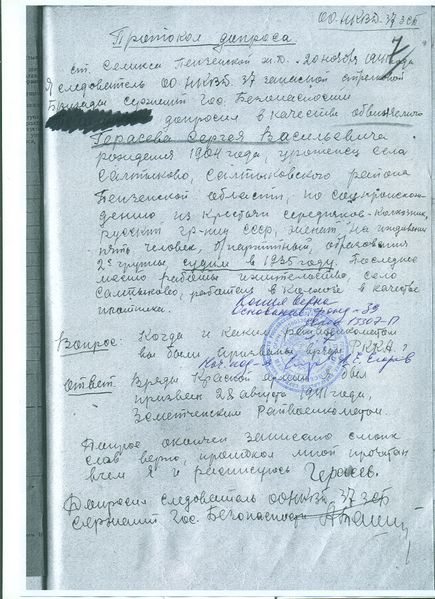 ОО.НКВД. 37 зсб
Протокол допроса
7
ст. Селикса Пензенской ж.д. - 20 ноября 1941 года
Я следователь ОО.НКВД. 37 запасной стрелковой
Бригады сержант Гос. Безопасности
допросил в качестве обвиняемого
Герасева Сергея Васильевича
рождения 1904 года, уроженец села
Салтыково, Салтыковского района
Пензенской области, по соцпроисхож-
дению из крестьян середняков - колхозник,
русский гр-нин СССР, женат, на иждивении
пять человек, б/партийный, образования
2 группы, судим в 1935 году. Последнее
место работы и жительство, село
Салтыково, работал в колхозе в качестве
плотника.
Копия верна
Основание: фонд - 39
Вопрос: Когда и каким райвоенкоматом
вы были призваны в ряды РККА?
Ответ: В ряды Красной армии я был
призван 28 августа 1941 года,
Земетченским Райвоенкоматом.
Допрос окончен записано с моих
слов верно, протокол мной прочитан
в чем я и расписуюсь Герасев.
Допросил следователь ОО.НКВД. 37 зсб
сержант Гос. Безопасности